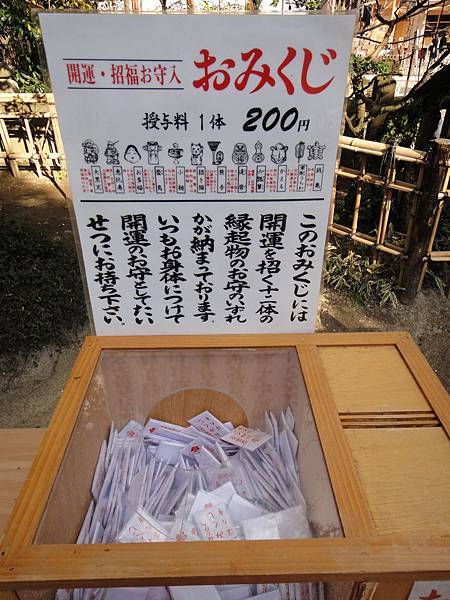 開運・招福お守入
おみくじ
授与料 1体 200円
このおみくじには
開運を招く十二体の
縁起物のお守のいずれ
かが納まっております。
いつもお身体につけて
開運のお守としてたい
せつにお持ち下さい。